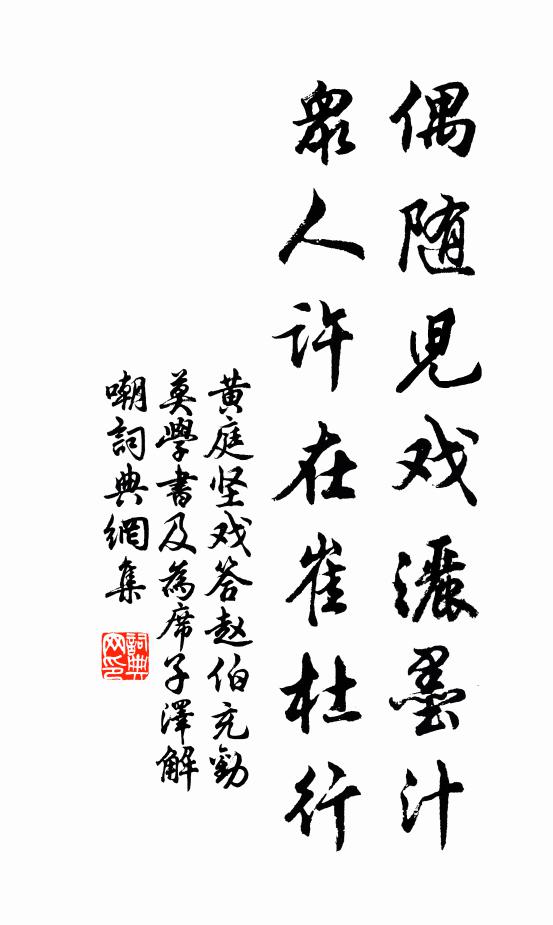 偶随兒戏灑墨汁
眾人许在崔杜行
黄庭坚戏答赵伯充勸
莫學書及為席子澤解
嘲詞典網集
詞典网印